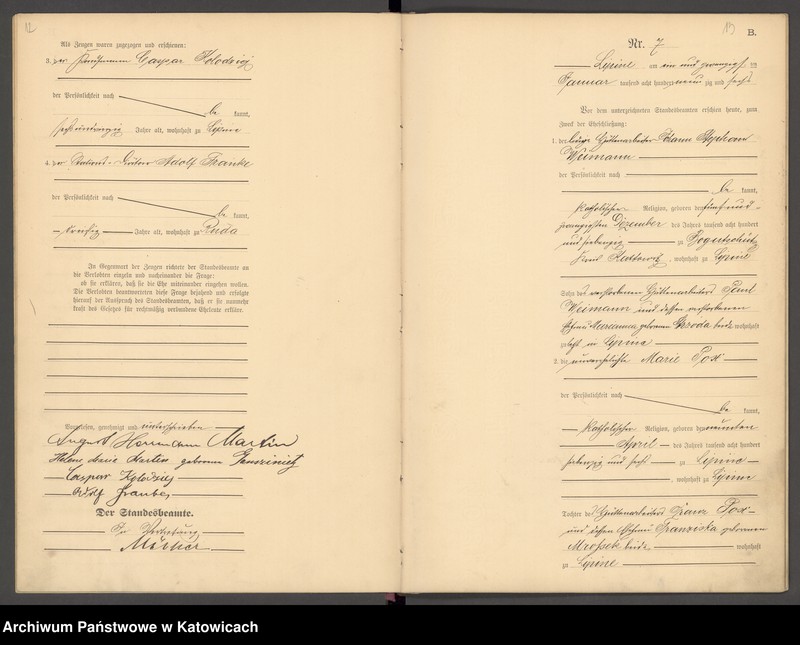 12
Als Zeugen waren zugezogen und erschienen:
3. der Hausmann Caspar Kolodziej
der Persönlichkeit nach
be kannt,
Jahre alt, wohnhaft zu Lipine
4. der Adolf Franke
der Persönlichkeit nach
be kannt,
dreißig Jahre alt, wohnhaft zu Ruda
In Gegenwart der Zeugen richtete der Standesbeamte an
die Verlobten einzeln und nacheinander die Frage:
ob sie erklären, daß sie die Ehe miteinander eingehen wollen.
Die Verlobten beantworteten diese Frage bejahend und erfolgte
hierauf der Ausspruch des Standesbeamten, daß er sie nunmehr
kraft des Gesetzes für rechtmäßig verbundene Eheleute erkläre.
Vorgelesen, genehmigt und unterschrieben
August Hermann Martin
Helene Marie Martin geborene
Caspar Kolodziej
Adolf Franke,
Der Standesbeamte.
In Vertretung
13
B.
Nr. 7
Lipine, am ein und zwanzigsten
Januar tausend acht hundert neun zig und sechs
Vor dem unterzeichneten Standesbeamten erschien heute, zum
Zweck der Eheschließung:
1. der ledige Hüttenarbeiter Johann Stephan
Weimann
der Persönlichkeit nach
be kannt,
katholischer Religion, geboren den fünf und
zwanzigsten Dezember des Jahres tausend acht hundert
und siebenzig zu Bogutschütz
Kreis Kattowitz, wohnhaft zu Lipine
Sohn des verstorbenen Hüttenarbeiters Paul
Weimann und dessen verstorbenen
Ehefrau Marianna geborenen Sroda beide wohnhaft
zuletzt in Lipine
2. die unverehelichte Marie Pox
der Persönlichkeit nach
be kannt,
katholischer Religion, geboren den neunten
April des Jahres tausend acht hundert
siebenzig und sechs zu Lipine
, wohnhaft zu Lipine
Tochter des Hüttenarbeiters Franz Pox
und dessen Ehefrau Franziska geborenen
Mrossek beide wohnhaft
zu Lipine
Archiwum Państwowe w Katowicach